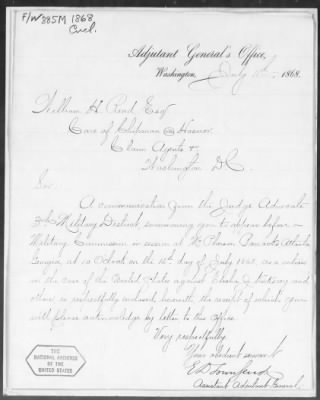 F/W 885M 1868.
Encl.
Adjutant General's Office,
Washington, July 1868.
William H. Reed Esq
Care of Chipman Hosmer
Claim Agents
Washington D.C.
Sir:
A communication from the Judge Advocate
3d Military District, summoning you to appear before a
Military Commission in session at McPherson Barracks Atlanta
Georgia, at 10 O'clock on the day of July 1868, as a witness
in the case of the United States against Elisha J.
others is respectfully enclosed herewith the receipt of which you
will please acknowledge by letter to this Office.
Very respectfully
Your obedient servant
E D Townsend
Assistant Adjutant General.
THE
NATIONAL ARCHIVES
OF THE
UNITED STATES